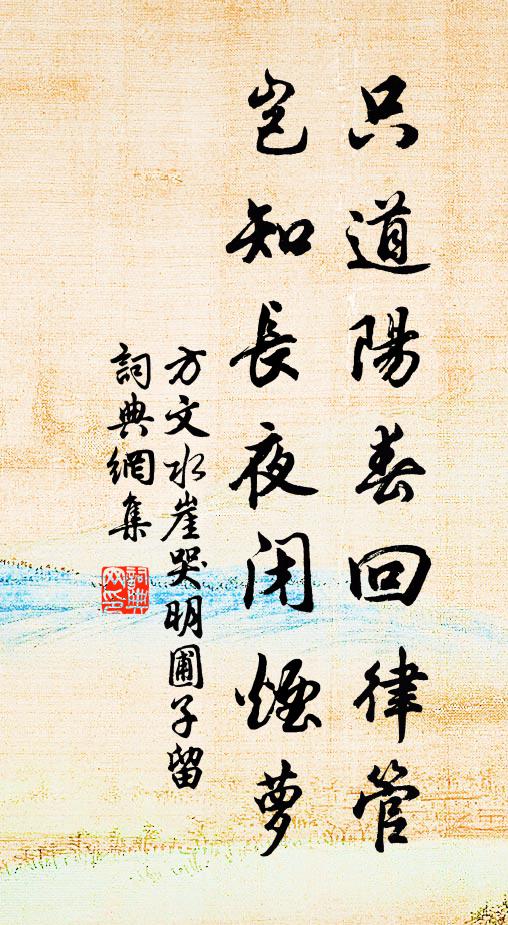 只道陽春回律管
豈知長夜閉煙蘿
方文水崖哭明圃子留
詞典網集
詞典網印